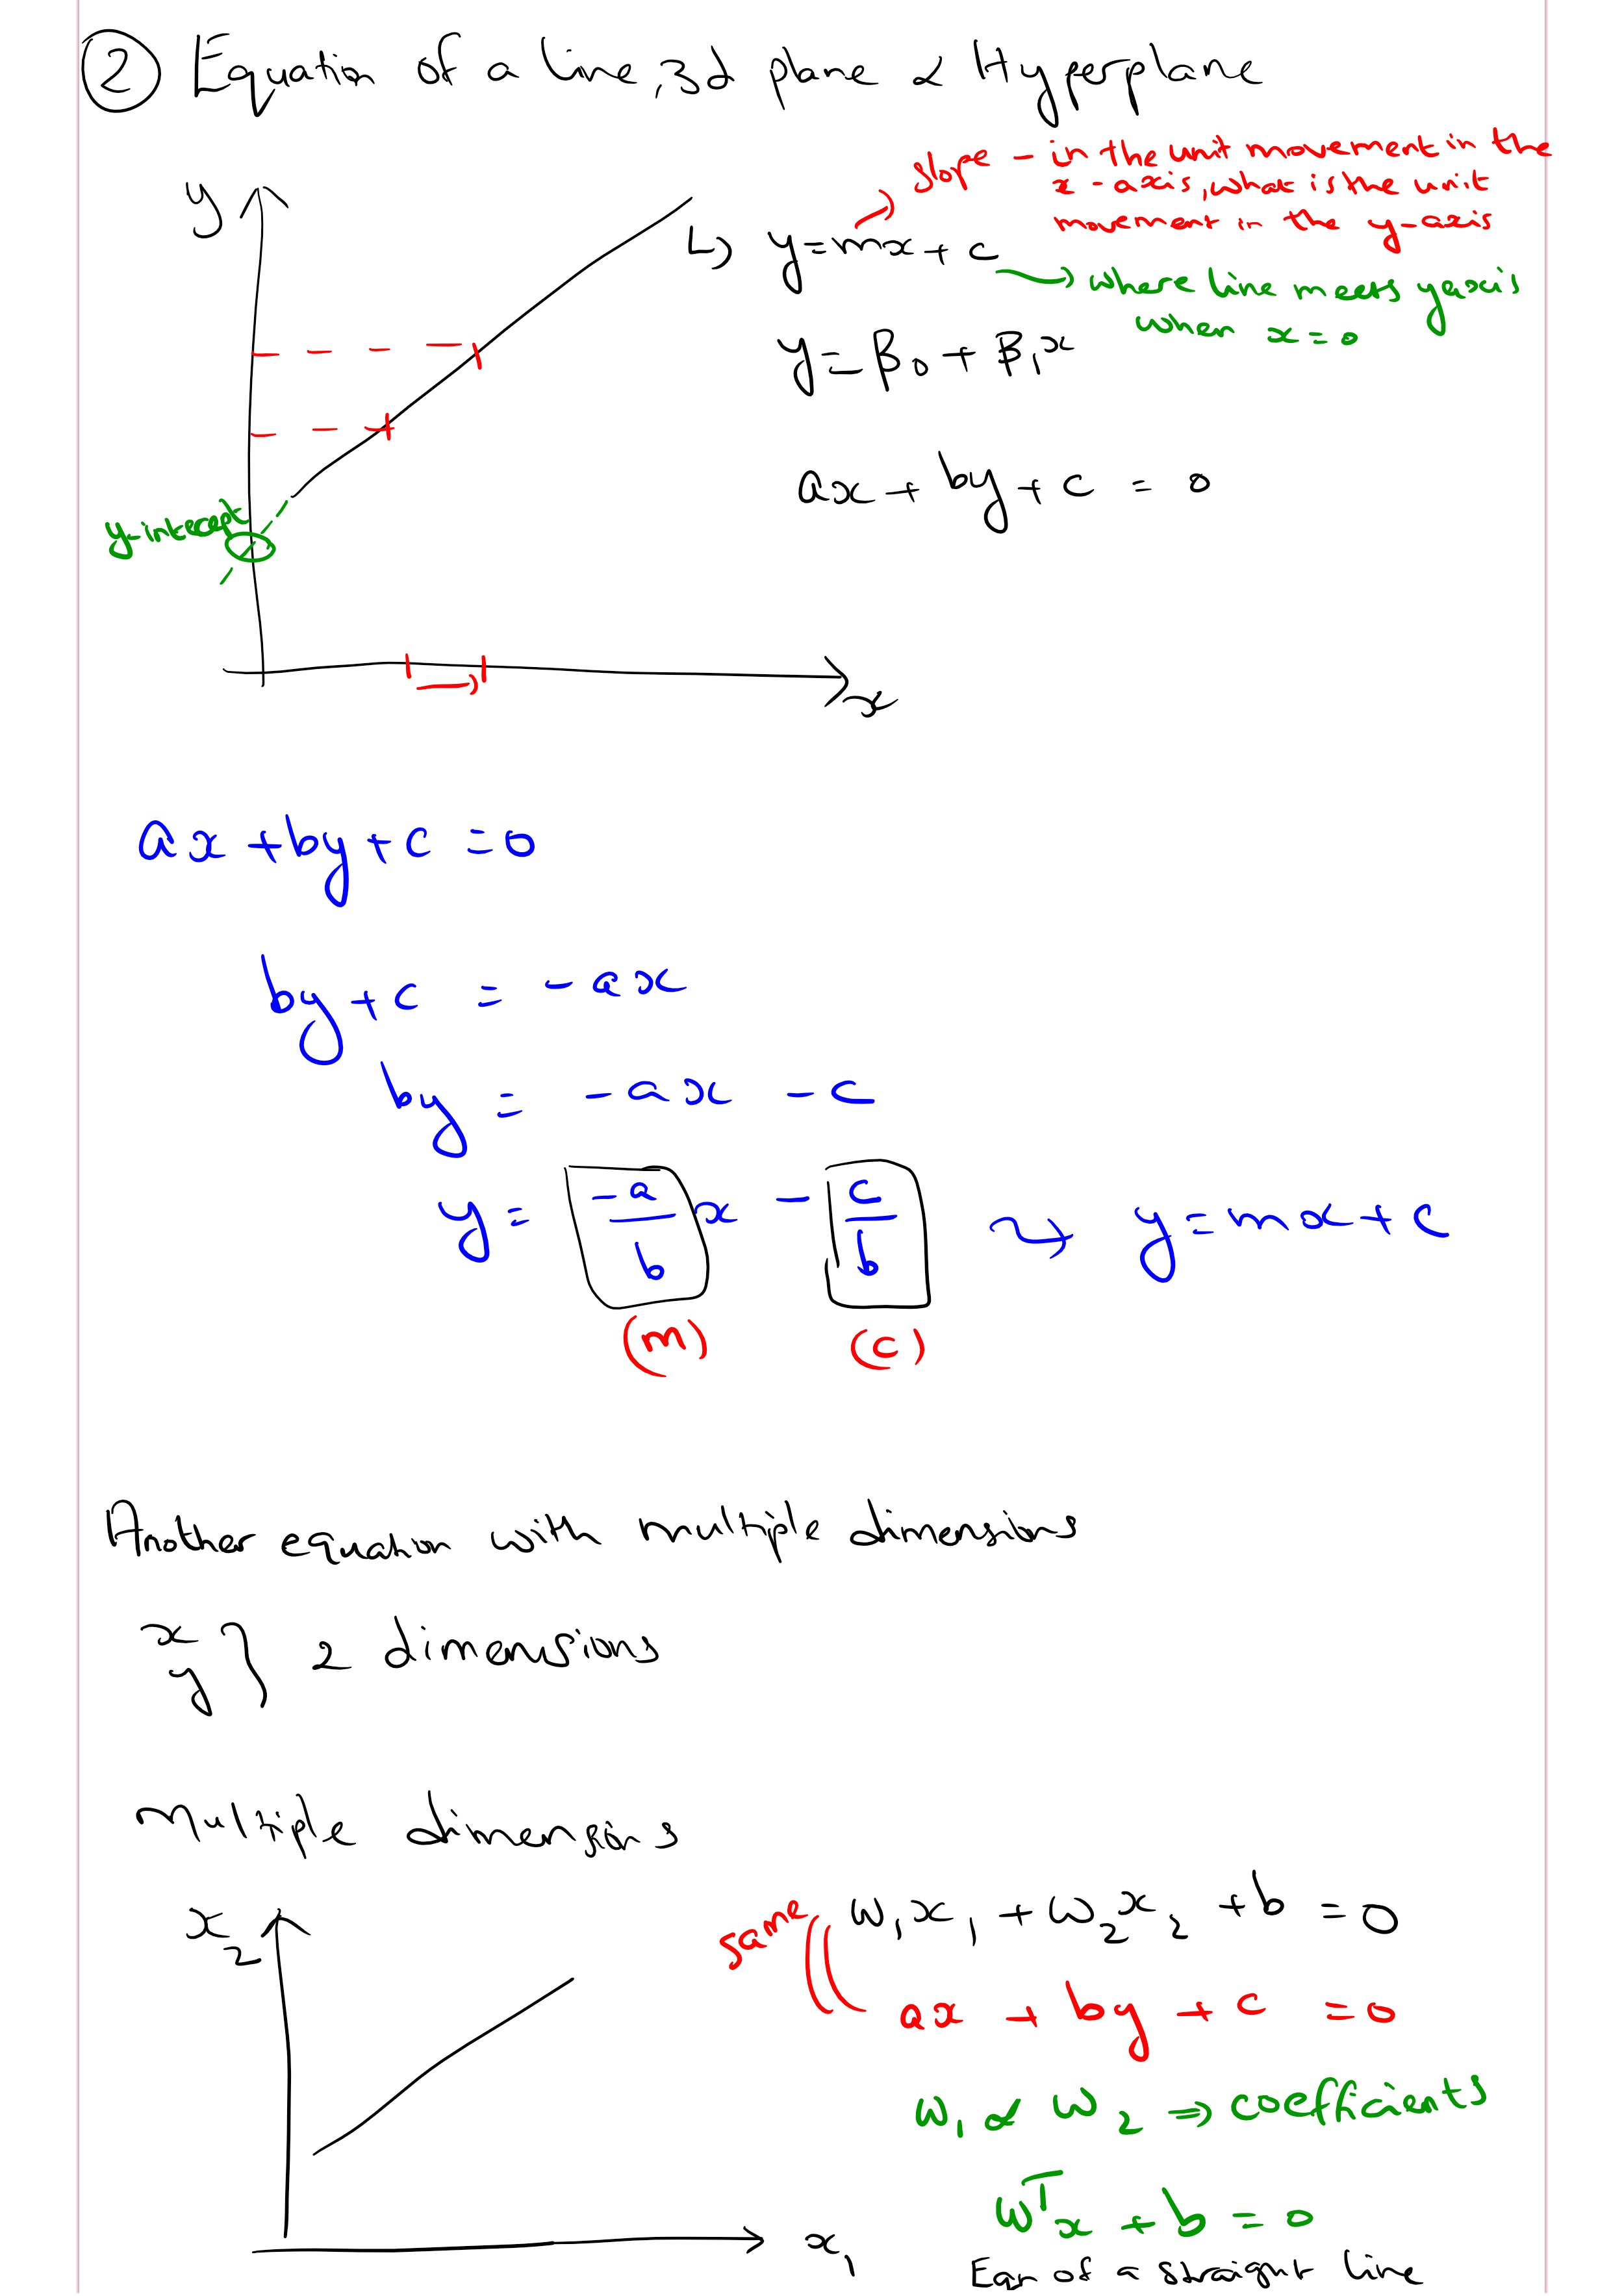 ② Equation of a line, 3d plane & Hyperplane
y
slope - in the unit movement in the
x-axis, what is the unit
movement in the y-axis
↳ y=mx+c
→ where line meets y axis
when x=0
y=β₀+β₁x
ax+by+c = 0
y-intecept
x
ax+by+c=0
by+c = -ax
by = -ax -c
y= -a/b x - c/b ↝ y=mx+c
(m) (c)
Another equation with multiple dimensions
x
y } 2 dimensions
Multiple dimensions
x₂
same
w₁x₁+w₂x₂+b=0
ax + by + c =0
w₁ & w₂ ⇒ coefficients
wᵀx + b = 0
x₁
Eqn of a straight line